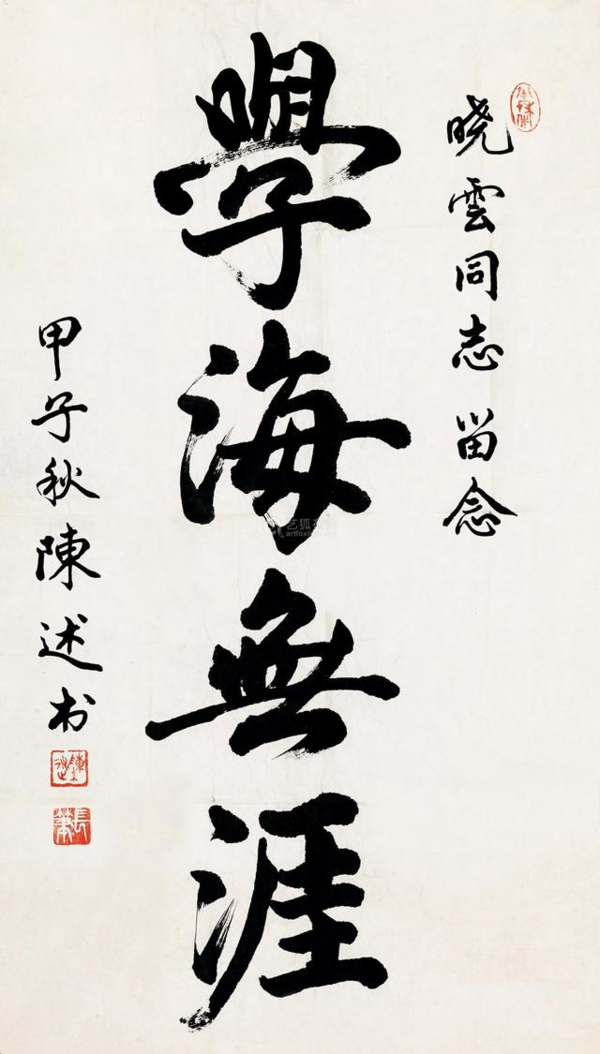 晓雲同志留念
學海無涯
甲子秋陳述书
艺狐
artfox